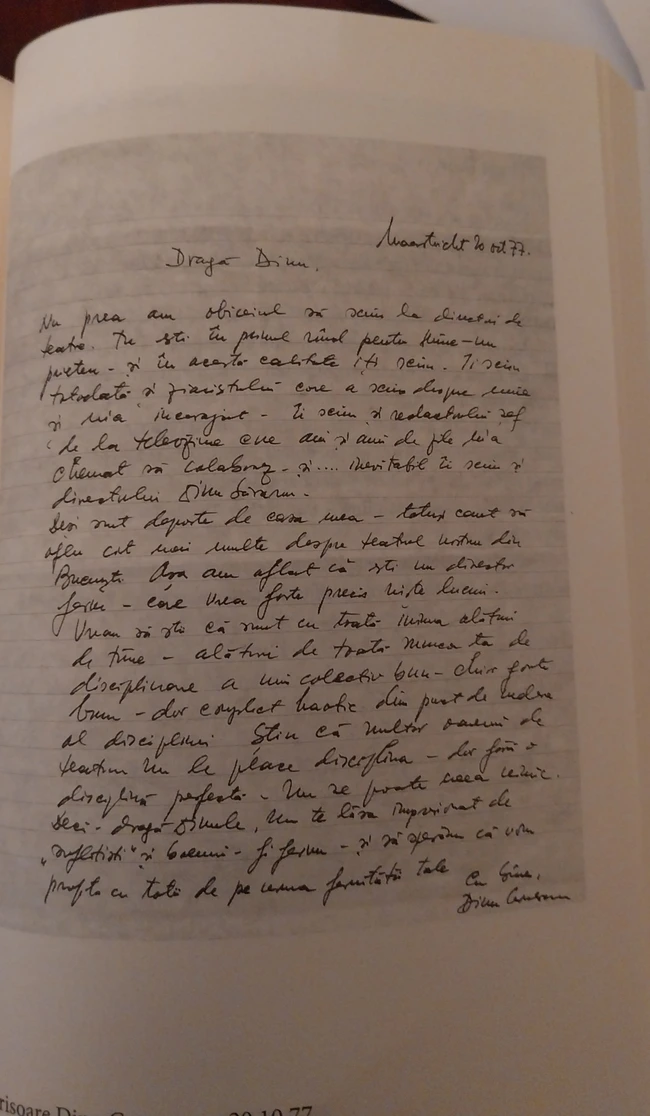 Maastricht 20 oct 77.
Dragă Dinu,
Nu prea am obiceiul să scriu la directori de
teatru. Tu ești în primul rînd pentru mine un
prieten - și în această calitate îți scriu. Ți scriu
totodată și ziaristului care a scris despre mine
și m-a încurajat - îi scriu și redactorului șef
de la televiziune care ani și ani de zile m-a
chemat să colaborez - și.... inevitabil îi scriu și
directorului Dinu Săraru -
Deși sunt departe de casa mea - totuși caut să
aflu cît mai multe despre teatrul nostru din
București. Așa am aflat că ești un director
ferm - care vrea foarte precis niște lucruri.
Vreau să știi că sunt cu toată inima alături
de tine - alături de toată munca ta de
disciplinare a unui colectiv bun - chiar foarte
bun - dar complet haotic din punct de vedere
al disciplinei. Știu că multor oameni de
teatru nu le place disciplina - dar fără o
disciplină perfectă - nu se poate crea nimic.
Deci - dragă Dinule, nu te lăsa impresionat de
„sufletiști" și boemi - fii ferm - și să sperăm că vom
profita cu toții de pe urma fermității tale
Cu bine,
Dinu Cernescu
20.10.77